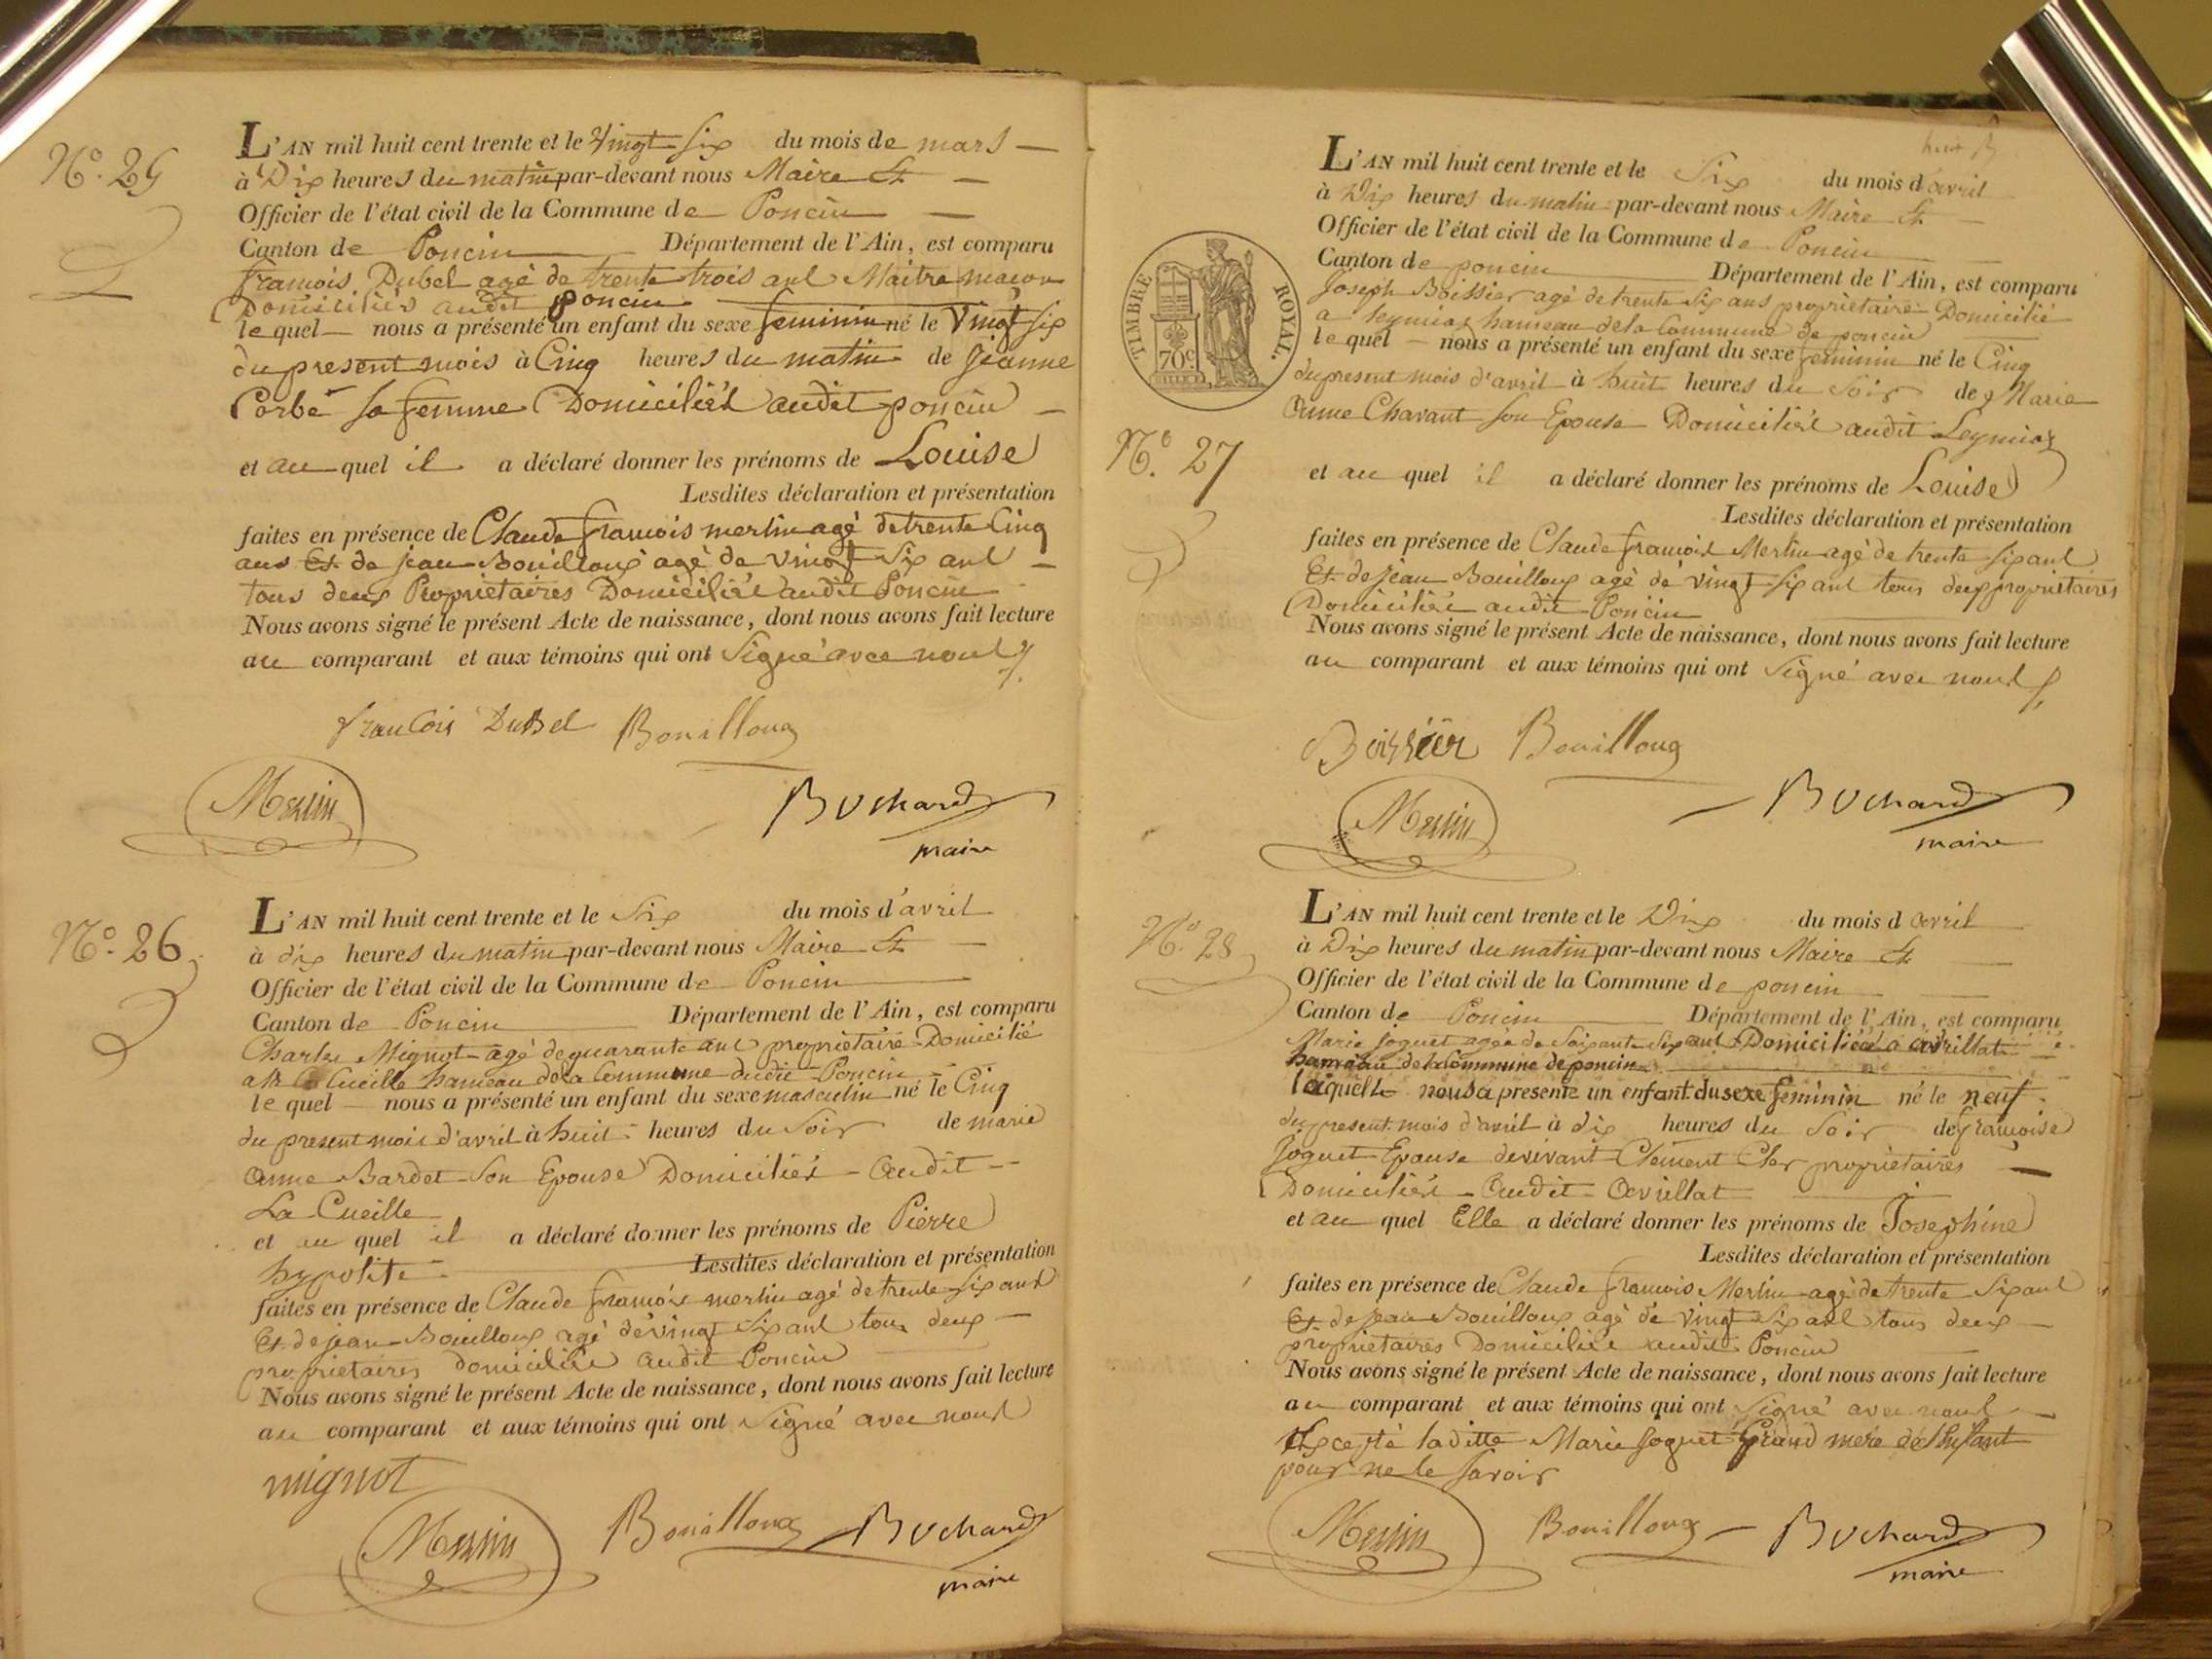 N.º 25
L'AN mil huit cent trente et le Vingt Six du mois de mars
à Dix heures du matin par-devant nous Maire Et
Officier de l'état civil de la Commune de Poncin
Canton de Poncin Département de l'Ain, est comparu
francois Dubel agé de trente trois ans Maitre macon
Domiciliés audit poncin
le quel nous a présenté un enfant du sexe feminin né le Vingt six
du present mois à Cinq heures du matin de Jeanne
Corbé sa femme Domiciliés audit poncin
et au quel il a déclaré donner les prénoms de Louise
Lesdites déclaration et présentation
faites en présence de Claude francois merlin agé de trente Cinq
ans Et de jean Bouilloux agé de vingt Six ans
tous deux Propriétaires Domiciliés audit Poncin
Nous avons signé le présent Acte de naissance, dont nous avons fait lecture
au comparant et aux témoins qui ont Signé avec nous
francois Dubel Bouilloux
Merlin Buchard
maire
N.º 26
L'AN mil huit cent trente et le Six du mois d'avril
à dix heures du matin par-devant nous Maire Et
Officier de l'état civil de la Commune de Poncin
Canton de Poncin Département de l'Ain, est comparu
Charles Mignot agé de quarante ans propriétaire Domicilié
a la Cueille hameau de la Commune dudit Poncin
le quel nous a présenté un enfant du sexe masculin né le Cinq
du present mois d'avril à huit heures du Soir de marie
anne Bardet Son Epouse Domiciliés Audit
La Cueille
et au quel il a déclaré donner les prénoms de Pierre
hypolite Lesdites déclaration et présentation
faites en présence de Claude francois merlin agé de trente Six ans
Et de jean Bouilloux agé de vingt Six ans tous deux
propriétaires domiciliés audit Poncin
Nous avons signé le présent Acte de naissance, dont nous avons fait lecture
au comparant et aux témoins qui ont Signé avec nous
mignot
Merlin Bouilloux Buchard
maire
L'AN mil huit cent trente et le Six du mois d'avril
à Dix heures du matin par-devant nous Maire Et
Officier de l'état civil de la Commune de Poncin
Canton de poncin Département de l'Ain, est comparu
TIMBRE ROYAL.
70c
Joseph Boissier agé de trente Six ans propriétaire Domicilié
a leymiaz hameau de la Commune de poncin
le quel nous a présenté un enfant du sexe feminin né le Cinq
du present mois d'avril à huit heures du Soir de Marie
Anne Chavant Son Epouse Domiciliés audit Leymiaz
N.º 27
et au quel il a déclaré donner les prénoms de Louise
Lesdites déclaration et présentation
faites en présence de Claude francois Merlin agé de trente Six ans
Et de jean Bouilloux agé de vingt Six ans tous deux propriétaires
Domiciliés audit Poncin
Nous avons signé le présent Acte de naissance, dont nous avons fait lecture
au comparant et aux témoins qui ont Signé avec nous
Boissier Bouilloux
Merlin Buchard
maire
N.º 28
L'AN mil huit cent trente et le Dix du mois d avril
à Dix heures du matin par-devant nous Maire Et
Officier de l'état civil de la Commune de poncin
Canton de Poncin Département de l'Ain, est comparu
Marie Joguet agée de Soixante Six ans Domiciliée a avrillat
hameau de la Commune de poncin
laquelle nous a présenté un enfant du sexe feminin né le neuf
du present mois d'avril à dix heures du Soir de francoise
Joguet Epouse devivant Clément Cler propriétaires
Domiciliés Audit Avrillat
et au quel Elle a déclaré donner les prénoms de Josephine
Lesdites déclaration et présentation
faites en présence de Claude francois Merlin agé de trente Six ans
Et de jean Bouilloux agé de vingt Six ans tous deux
propriétaires Domiciliés audit Poncin
Nous avons signé le présent Acte de naissance, dont nous avons fait lecture
au comparant et aux témoins qui ont Signé avec nous
Excepté laditte Marie Joguet Grand mere de l'enfant
pour ne le Savoir
Merlin Bouilloux Buchard
maire